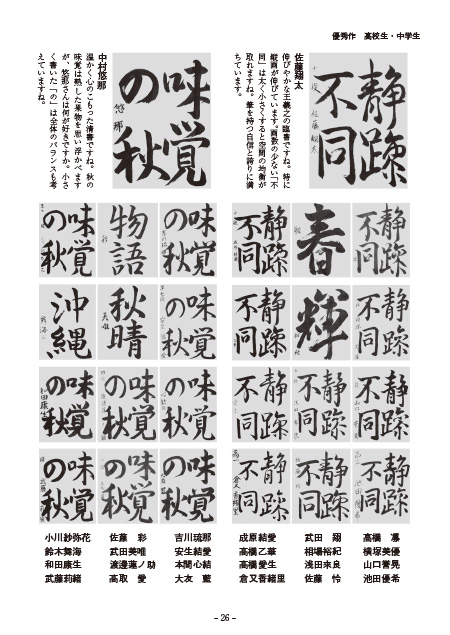 優秀作　高校生・中学生
静躁
不同
佐藤翔太
伸びやかな王羲之の臨書ですね。特に
縦画が伸びています。画数の少ない「不
同」は太く小さくすると空間の均衡が
取れますね。筆を持つ自信と誇りに満
ちています。
味覚
の秋
悠那
中村悠那
温かく心のこもった清書ですね。秋の
味覚は熟した果物を思い浮かべます
が、悠那さんは何が好きですか。小さ
く書いた「の」は全体のバランスも考
えていますね。
静躁
不同
春
静躁
不同
味覚
の秋
物語
味覚
の秋
静躁
不同
輝
静躁
不同
味覚
の秋
秋晴
沖縄
静躁
不同
静躁
不同
静躁
不同
味覚
の秋
味覚
の秋
味覚
の秋
和田康生
静躁
不同
静躁
不同
静躁
不同
味覚
の秋
味覚
の秋
味覚
の秋
小川紗弥花　佐藤　彩　吉川琉那　成原結愛　武田　翔　高橋　凛
鈴木舞海　武田美唯　安生結愛　高橋乙華　相場裕紀　横塚美優
和田康生　渡邉蓮ノ助　本間心結　高橋愛生　浅田来良　山口誉晃
武藤莉緒　高取　愛　大友　藍　倉又香緒里　佐藤　怜　池田優希
- 26 -